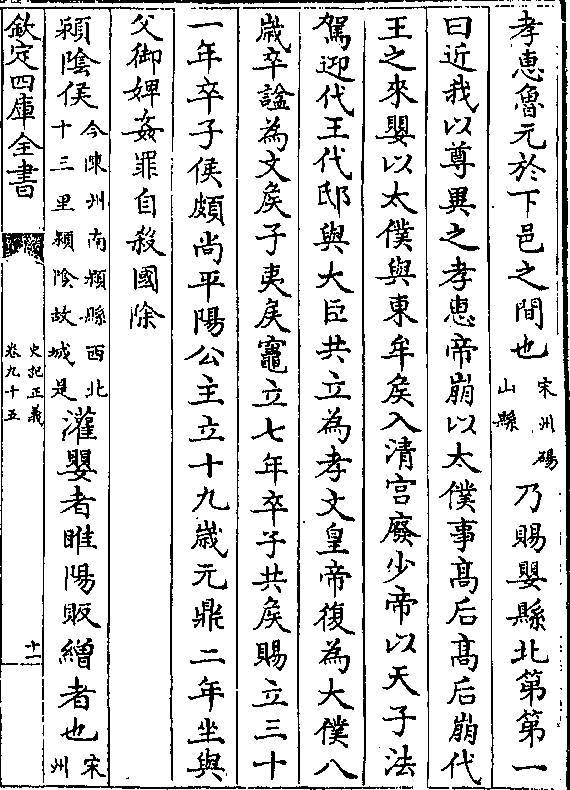 孝惠魯元於下邑之間也宋州碭山縣乃賜嬰縣北第第一
曰近我以尊異之孝惠帝崩以太僕事髙后髙后崩代
王之來嬰以太僕與東牟矦入清宫廢少帝以天子法
駕迎代王代邸與大臣共立為孝文皇帝復為大僕八
嵗卒諡為文矦子夷矦竈立七年卒子共矦賜立三十
一年卒子侯頗尚平陽公主立十九嵗元鼎二年坐與
父御婢姦罪自殺國除
潁隂侯今陳州南頓縣西北十三里潁隂故城是灌嬰者睢陽販繒者也宋州
欽定四庫全書
史記正義
卷九十五
十一